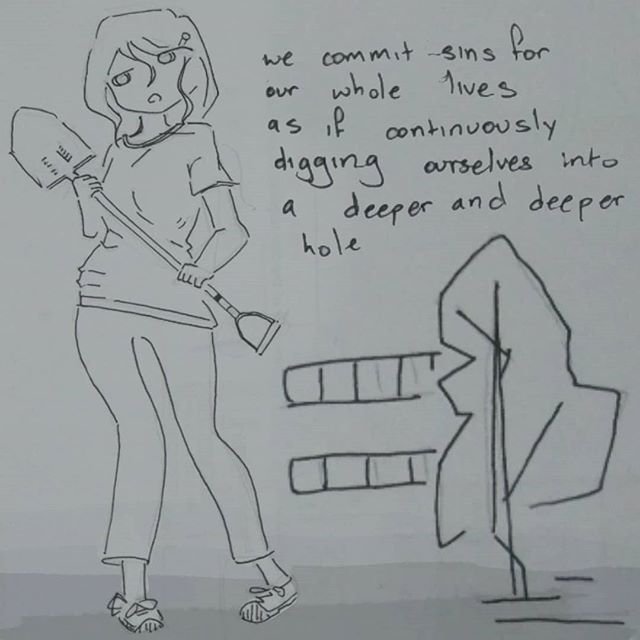 we commit sins for
our whole lives
as if continuously
digging ourselves into
a deeper and deeper
hole